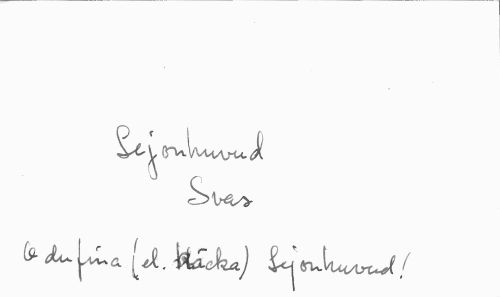 Lejonhuvud
Svas
O du fina (el. käcka) Lejonhuvud!